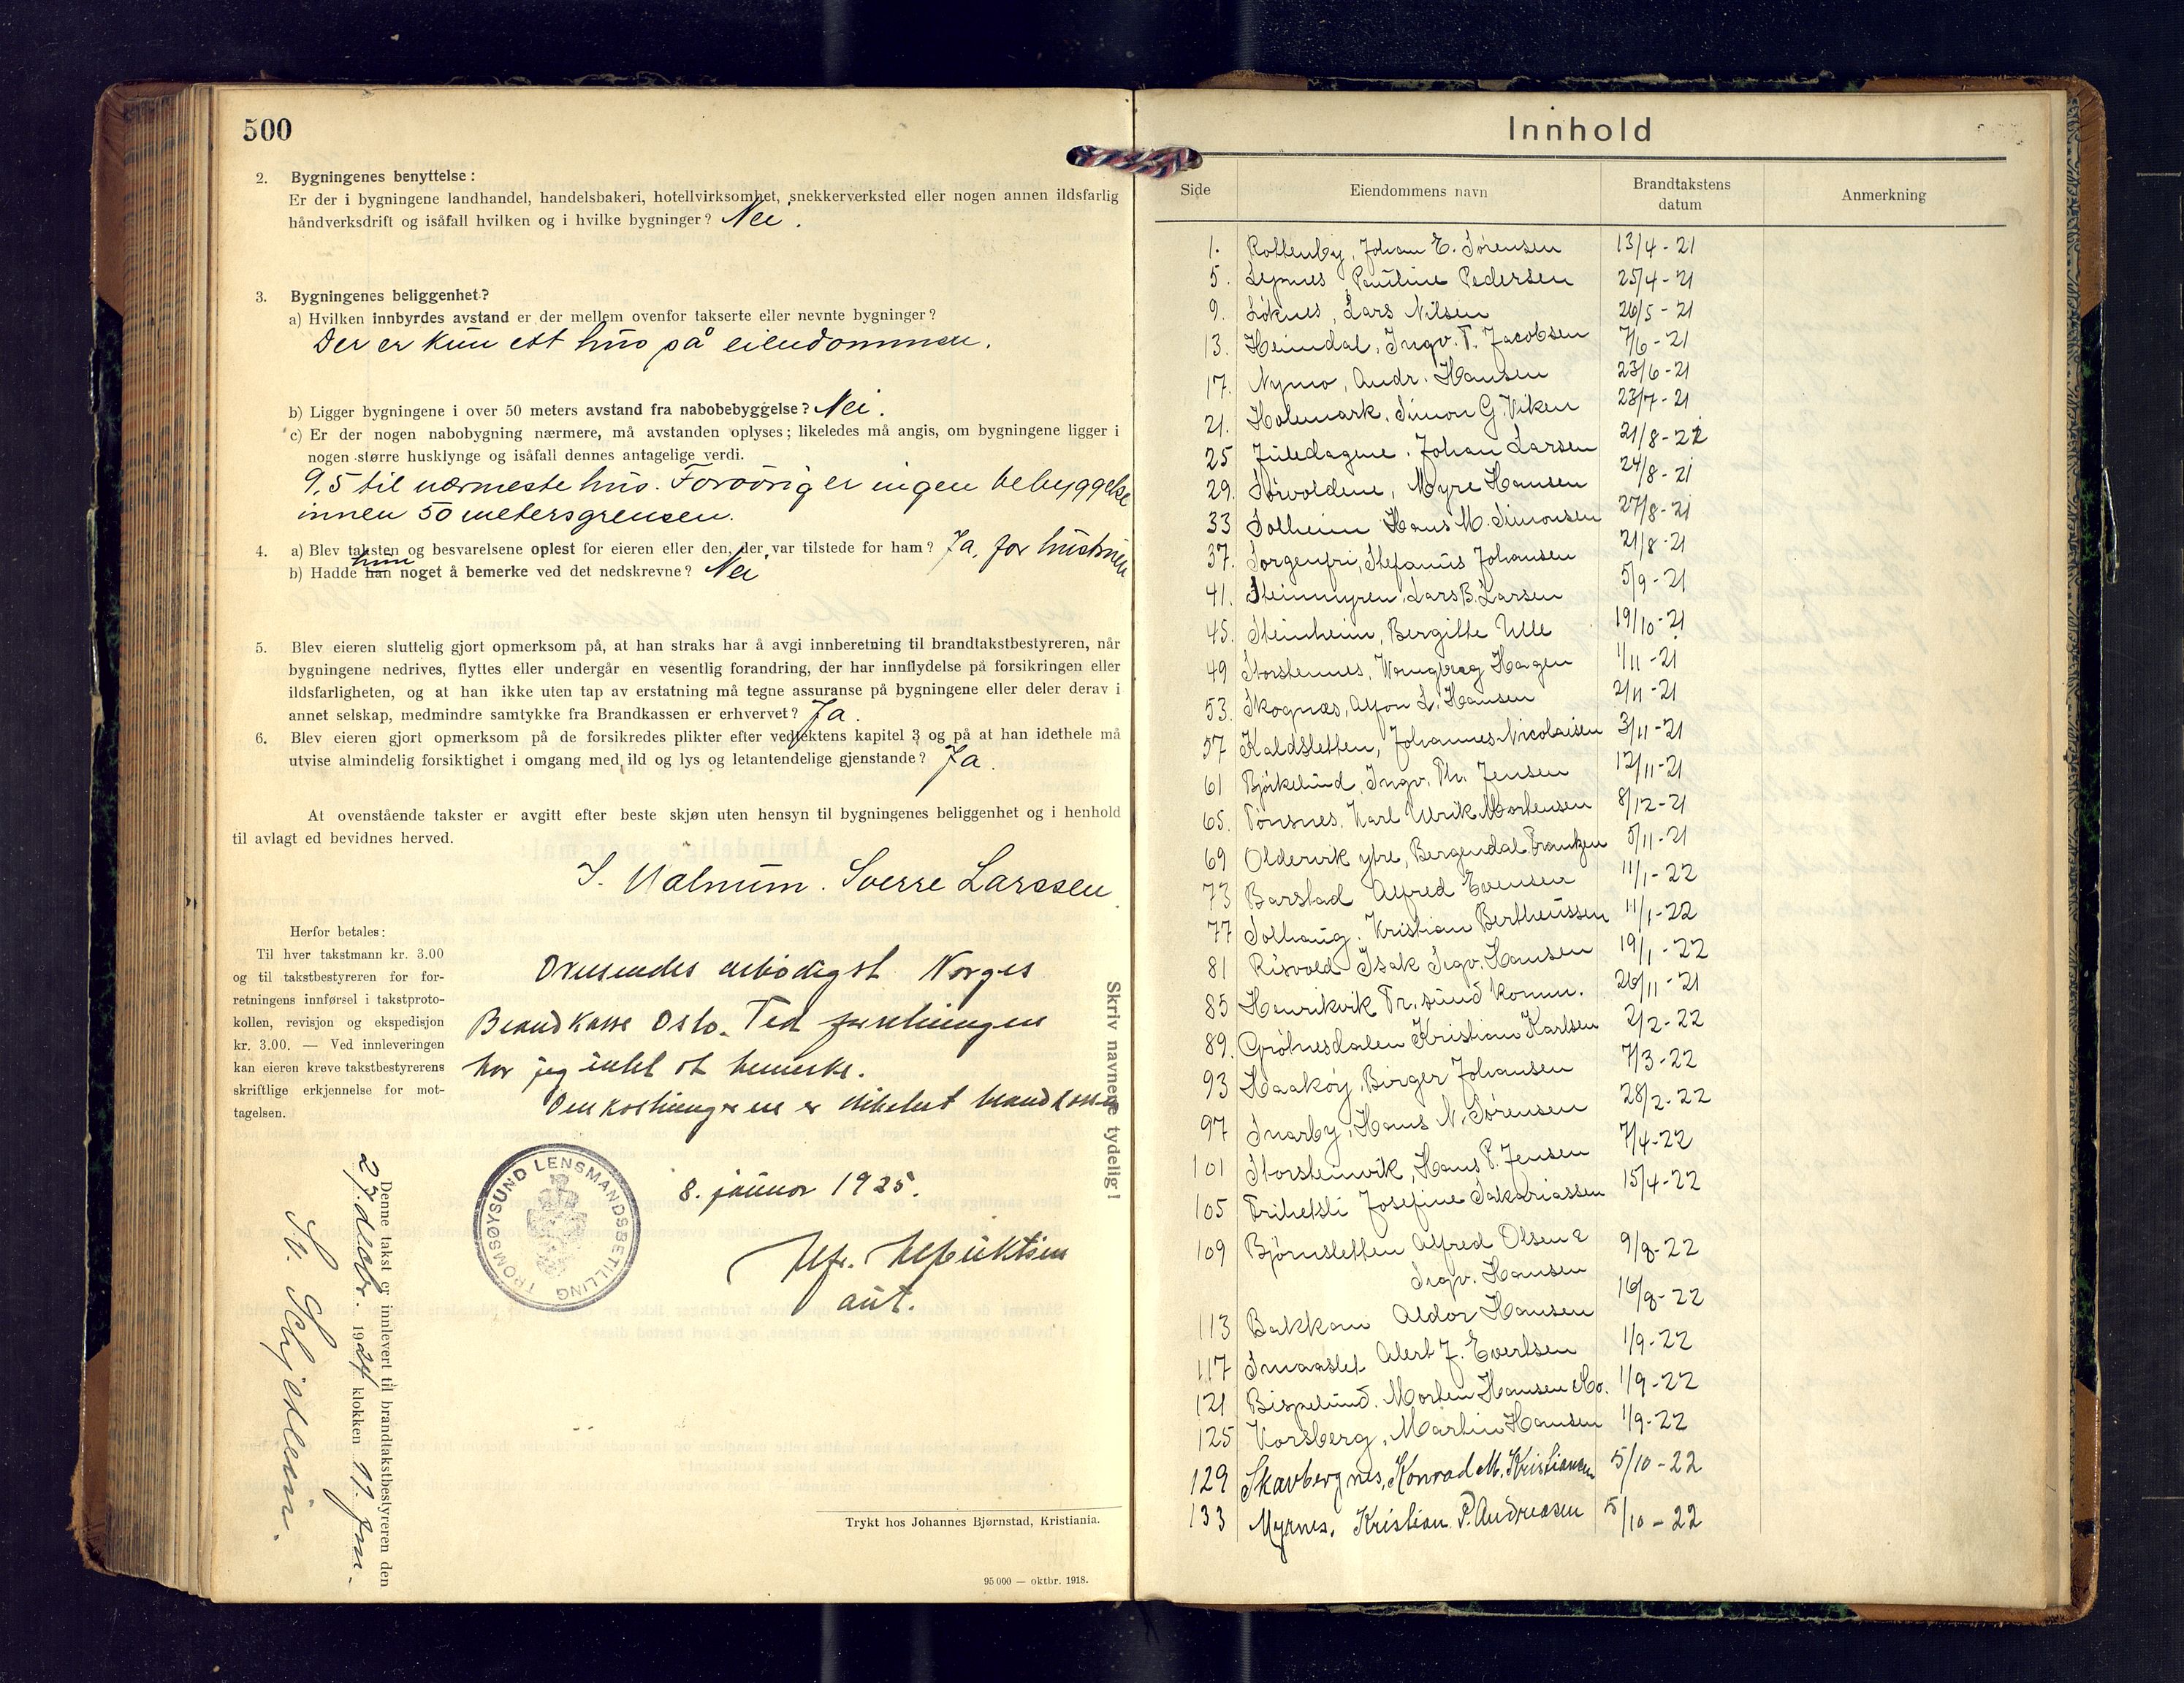 500
2. Bygningenes benyttelse:
Er der i bygningene landhandel, handelsbakeri, hotellvirksomhet, snekkerverksted eller nogen annen ildsfarlig
håndverksdrift og isåfall hvilken og i hvilke bygninger? Nei.
3. Bygningenes beliggenhet?
a) Hvilken innbyrdes avstand er der mellem ovenfor takserte eller nevnte bygninger?
Der er kun ett hus på eiendommen.
b) Ligger bygningene i over 50 meters avstand fra nabobebyggelse? Nei.
c) Er der nogen nabobygning nærmere, må avstanden oplyses; likeledes må angis, om bygningene ligger i
nogen større husklynge og isåfall dennes antagelige verdi.
9,5 til nærmeste hus. Forøvrig er ingen bebyggelse
innen 50 metersgrensen.
4. a) Blev taksten og besvarelsene oplest for eieren eller den, der var tilstede for ham? Ja, for hustruen
hun
b) Hadde han noget å bemerke ved det nedskrevne? Nei
5. Blev eieren sluttelig gjort opmerksom på, at han straks har å avgi innberetning til brandtakstbestyreren, når
bygningene nedrives, flyttes eller undergår en vesentlig forandring, der har innflydelse på forsikringen eller
ildsfarligheten, og at han ikke uten tap av erstatning må tegne assuranse på bygningene eller deler derav i
annet selskap, medmindre samtykke fra Brandkassen er erhvervet? Ja.
6. Blev eieren gjort opmerksom på de forsikredes plikter efter vedtektens kapitel 3 og på at han idethele må
utvise almindelig forsiktighet i omgang med ild og lys og letantendelige gjenstande? Ja.
At ovenstående takster er avgitt efter beste skjøn uten hensyn til bygningenes beliggenhet og i henhold
til avlagt ed bevidnes herved.
Sverre Larssen.
Herfor betales:
Til hver takstmann kr. 3.00
og til takstbestyreren for for-
retningens innførsel i takstproto-
kollen, revisjon og ekspedisjon
kr. 3.00. — Ved innleveringen
kan eieren kreve takstbestyrerens
skriftlige erkjennelse for mot-
tagelsen.
Oversendes ærbødigst Norges
Brandkasse Oslo. Ved forretningen
har jeg intet at bemerke.
Omkostningene er
8. januar 1925.
aut.
TROMSØYSUND LENSMANDSBESTILLING
Skriv navnene tydelig!
Denne takst er innlevert til brandtakstbestyreren den
27. decbr. 1924 klokken 11 fm.
Trykt hos Johannes Bjørnstad, Kristiania.
95 000 — oktbr. 1918.
Innhold
Side Eiendommens navn Brandtakstens datum Anmerkning
1. Rottenby, Johan E. Sørensen 13/4-21
5. Pauline Pedersen 25/4-21
9. Løknes, Lars Nilsen 26/5-21
13. Heimdal, Ingv. T. Jacobsen 7/6-21
17. Nymo, Andr. Hansen 23/6-21
21. Holmmark, Simon G. Viken 23/7-21
25 Juledagene. Johan Larsen 21/8-22
29. Sørvoldene, Myre Hansen 24/8-21
33 Solheim Hans M. Simonsen 27/8-21
37. Sorgenfri, Stefanus Johansen 21/8-21
41. Steinmyren, Lars B. Larsen 5/9-21
45. Steinheim, Bergitte Ulle 19/10-21
49 Storstennes, Wangberg Hagen 1/11-21
53. Skognæs, Alfon L. Hansen 2/11-21
57 Kaldsletten, Johannes Nicolaisen 3/11-21
61 Bjørkelund, Ingv. Th. Jensen 12/11-21
65. Tønsnes, Karl Ulrik Mortensen 8/12-21
69 Oldervik ytre, Bergendal Frantzen 5/11-21
73 Barstad Alfred Evensen 11/1-22
77 Solhaug, Kristian Bertheussen 11/1-22
81 Risvold Isak Sigv. Hansen 19/1-22
85 Henrikvik Tr.sund komm. 26/11-21
89. Grøtnesdalen Kristian Karlsen 2/2-22
93 Haakøy, Birger Johansen 7/3-22
97 Snarby, Hans N. Sørensen 28/2-22
101 Storsteinvik, Hans P. Jensen 7/4-22
105 Trihetsli Josefine Sakariassen 15/4-22
109 Bjørnsletten Alfred Olsen & 9/8-22
Sigv. Hansen
113 Bakkam Aldor Hansen 16/8-22
117 Smaaslet Albert J. Evertsen 1/9-22
121 Bispelund. Morten Hansen Mo. 1/9-22
125 Korsberg, Martin Hansen 1/9-22
129 Skavbergnes, Konrad M. Kristiansen 5/10-22
133 Myrnes. Kristian P. Andreasen 5/10-22